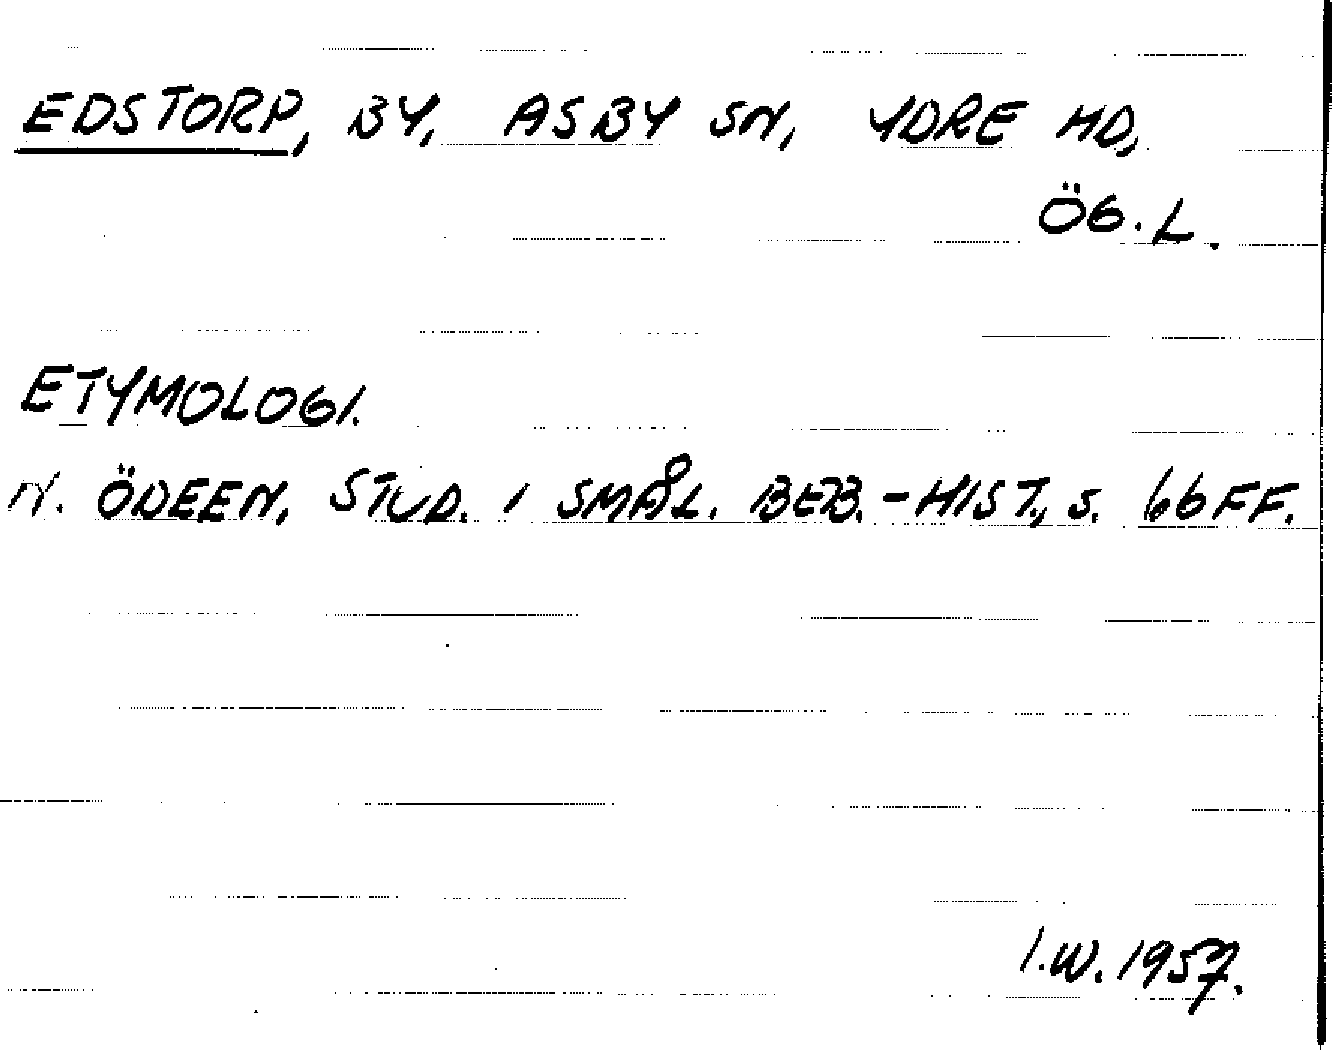 EDSTORP, BY, ASBY SN, YDRE HD,
ÖG.L.
ETYMOLOGI.
N. ÖDEEN, STUD. I SMÅL. BEB.-HIST., S. 66FF.
I.W. 1957.